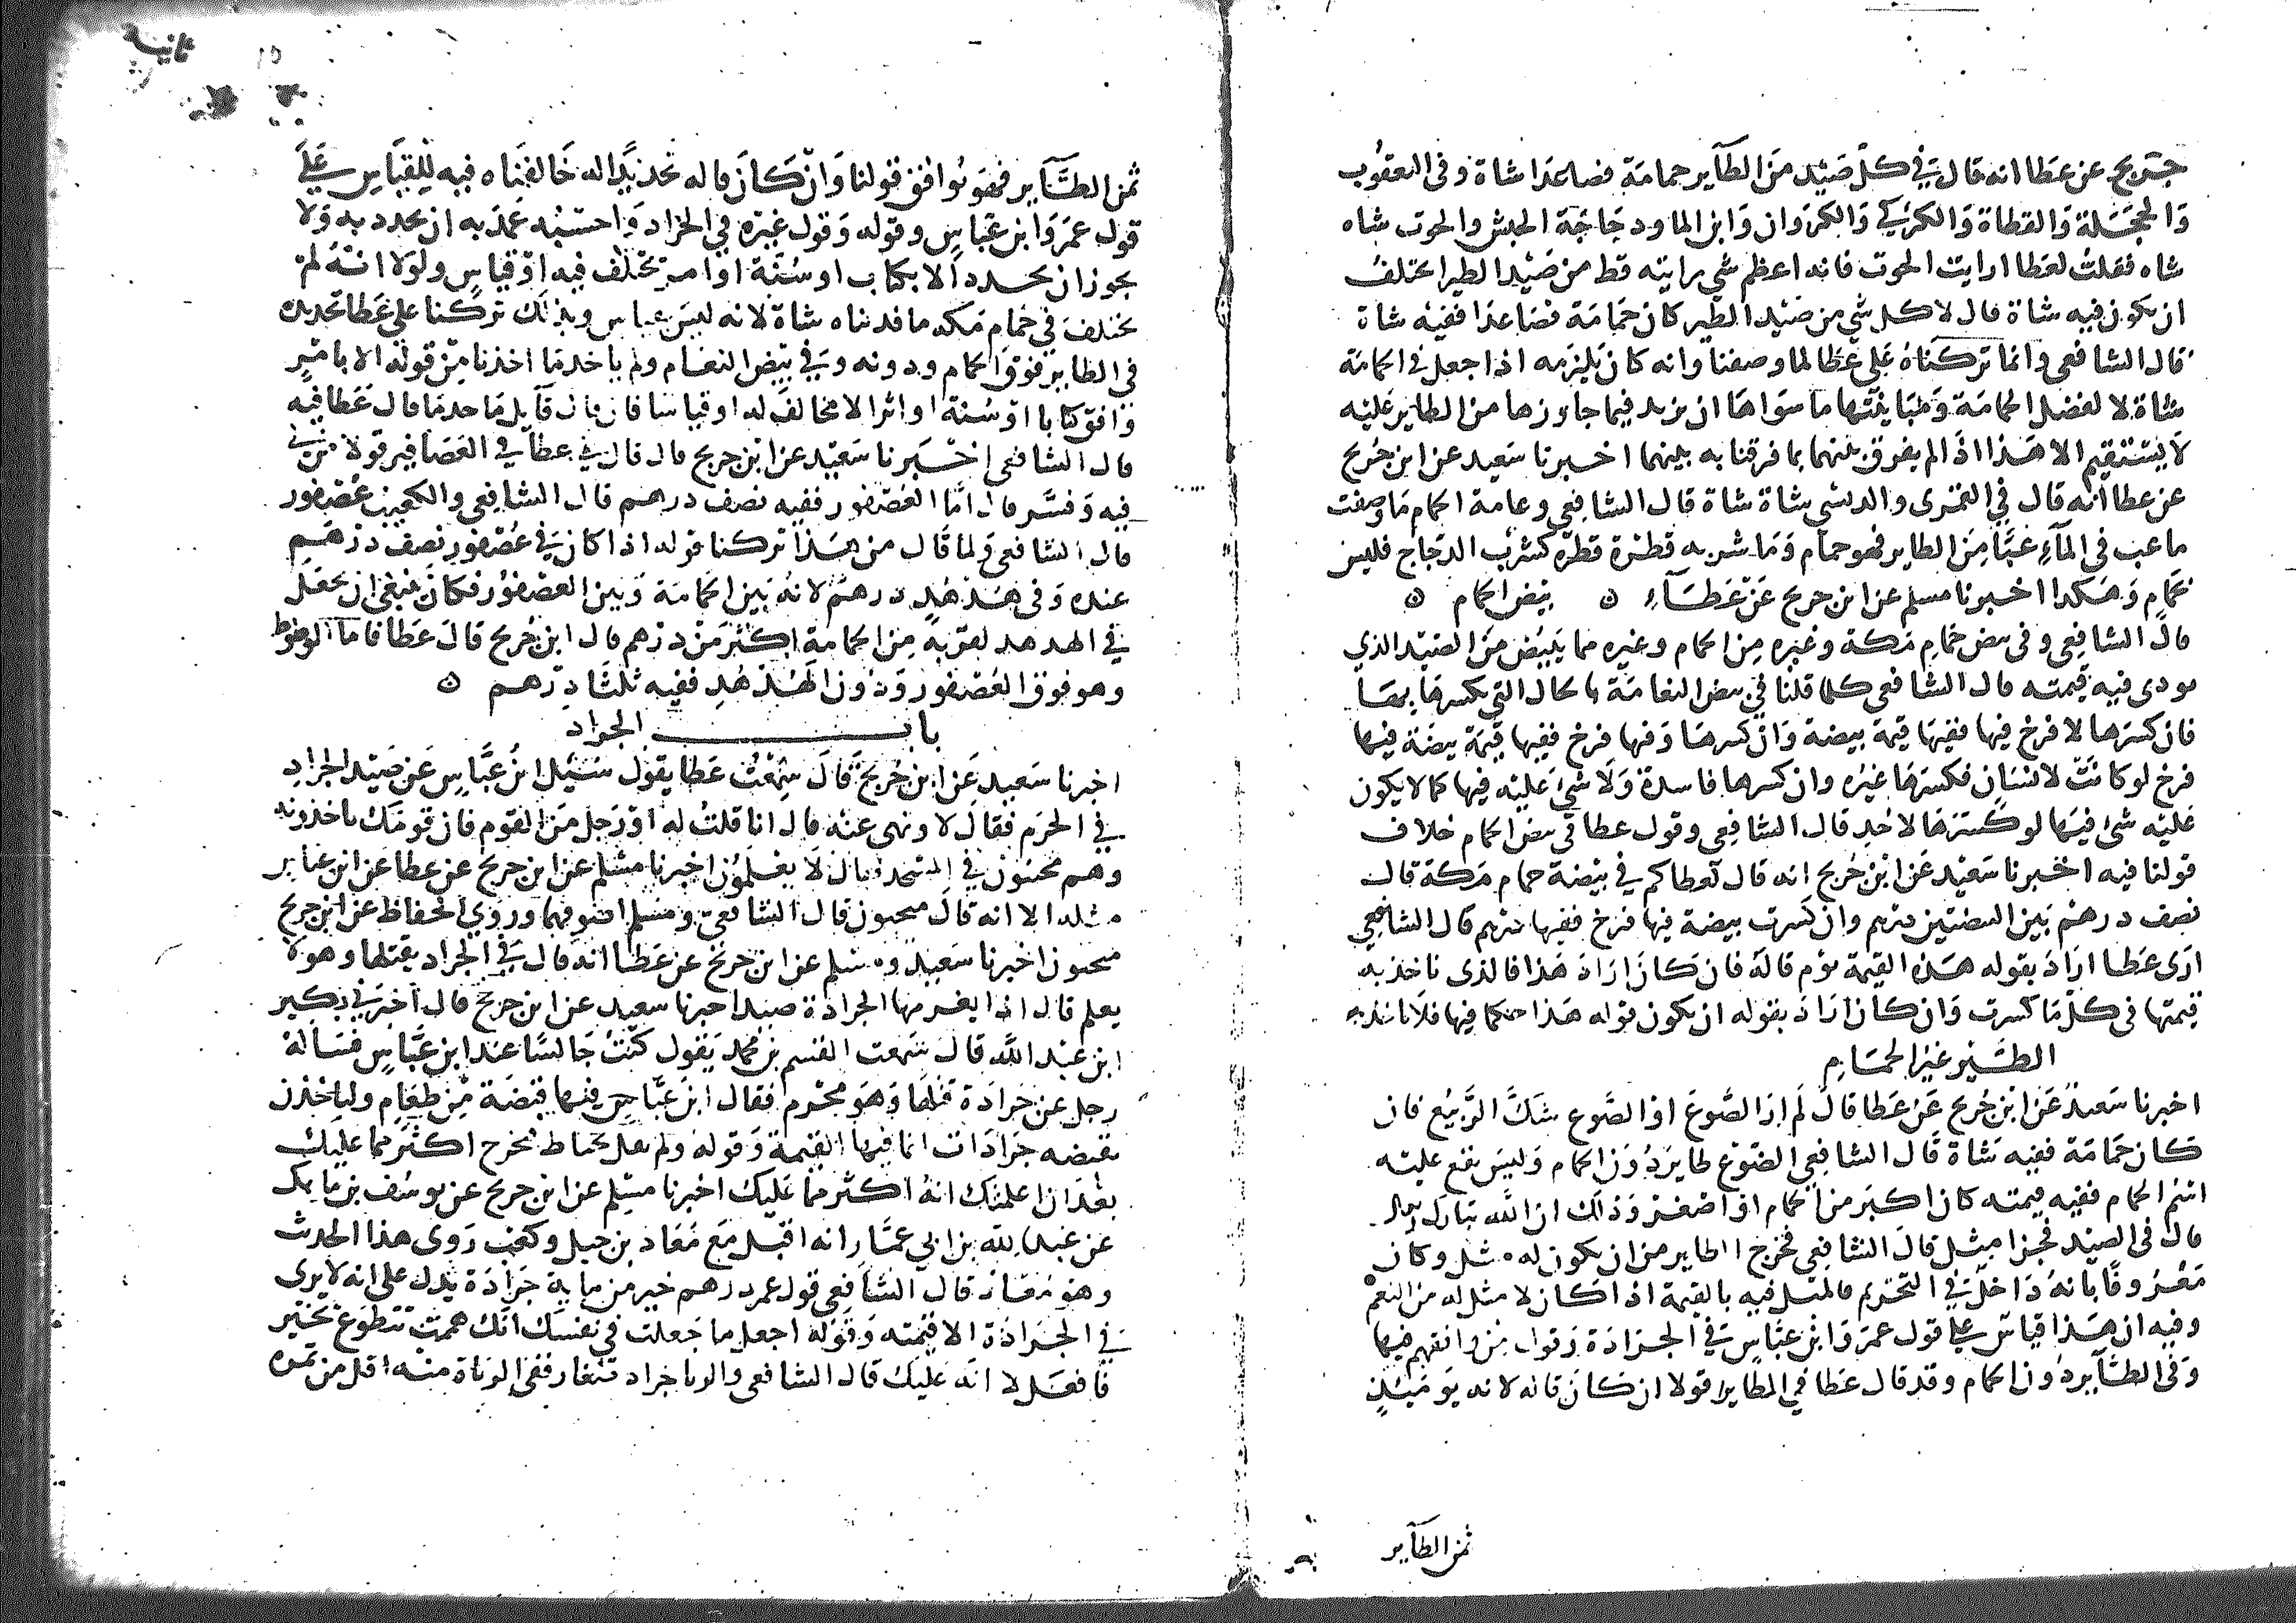 جريج عن عطا انه قال في كل صيد من الطاير حمامة فصاعدا شاة وفي اليعقوب
والحجلة والقطاة والكركي والكروان وابن الما ودجاجة الحبش والحرب شاه
شاه فقلت لعطا ارايت الحرب فانه اعظم شي رايته قط من صيد الطير ايختلف
ان يكون فيه شاة قال لا كل شي من صيد الطير كان حمامة فصاعدا ففيه شاة
قال الشافعي وانما تركناه علي عطا لما وصفنا وانه كان يلزمه اذا جعل في الحمامة
شاة لا لفضل الحمامة ومباينتها ما سواها ان يزيد فيما جاوزها من الطاير عليه
لا يستقيم الا هذا اذا لم يفرق بينهما بما فرقنا به بينهما اخبرنا سعيد عن ابن جريج
عن عطا انه قال في القمري والدبسي شاة شاة قال الشافعي وعامة الحمام ما وصفت
ما عب في المآء عبًّا من الطاير فهو حمام وما شربه قطرة قطرة كشرب الدجاج فليس
بحمام وهكذا اخبرنا مسلم عن ابن جريج عن عطآء ه بيض الحمام ه
قال الشافعي وفي بيض حمام مكة وغيره من الحمام وغيره مما يبيض من الصيد الذي
يودى فيه قيمته قال الشافعي كلما قلنا في بيض النعامة بالحال التي يكسرها بها
فان كسرها لا فرخ فيها ففيها قيمة بيضة وان كسرها وفيها فرخ ففيها قيمة بيضة فيها
فرخ لو كانت لانسان فكسرها غيره وان كسرها فاسدة ولا شي عليه فيها كما لا يكون
عليه شي فيها لو كسرها لاحد قال الشافعي وقول عطا في بيض الحمام خلاف
قولنا فيه اخبرنا سعيد عن ابن جريج انه قال لعطا كم في بيضة حمام مكة قال
نصف درهم بين البيضتين درهم وان كسرت بيضة فيها فرخ ففيها درهم قال الشافعي
ارى عطا اراد بقوله هذه القيمة يوم قاله فان كان اراد هذا فالذي ناخذ به
قيمتها في كل ما كسرت وان كان اراد بقوله ان يكون قوله هذا حكما فيها فلا ناخذ به
الطير غير الحمام
اخبرنا سعيد عن ابن جريج عن عطا قال لم ار الضوع او الضوع شك الربيع فان
كان حمامة ففيه شاة قال الشافعي الضوع طاير دون الحمام وليس يقع عليه
اسم الحمام ففيه قيمته كان اكبر من الحمام او اصغر وذلك ان الله تبارك وتعالى
قال في الصيد فجزا مثل قال الشافعي فخرج الطاير من ان يكون له مثل وكان
معروفا بانه داخل في التحريم فالمثل فيه بالقيمة اذا كان لا مثل له من النعم
وفيه ان هذا قياس علي قول عمر وابن عباس في الجرادة وقول من وافقهم فيها
وفي الطآير دون الحمام وقد قال عطا في الطاير قولا ان كان قاله لانه يوميذ
ثمن الطآير
ثانية
ثمن الطآير فهو يوافق قولنا وان كان قاله تحديدا له خالفناه فيه للقياس علي
قول عمر وابن عباس وقوله وقول غيره في الجراد واحسبه عمد به ان يحدد به ولا
يجوز ان يحدد الا بكتاب او سنة او امر لم يختلف فيه او قياس ولولا انه لم
يختلف في حمام مكه ما فديناه بشاة لانه ليس بقياس وبذلك تركنا علي عطا تحديده
في الطاير فوق الحمام ودونه وفي بيض النعام ولم ياخذ ما اخذنا من قوله الا بامر
وافق كتابا او سنة او اثرا لا مخالف له او قياسا فان قال قايل ما حد ما قال عطا فيه
قال الشافعي اخبرنا سعيد عن ابن جريج قال قال لي عطا في العصافير قولا بين لي
فيه وفسر قال اما العصفور ففيه نصف درهم قال الشافعي والكعيت عصفور
قال الشافعي ولما قال من هذا تركنا قوله اذا كان في عصفور نصف درهم
عنده وفي هدهد درهم لانه بين الحمامة وبين العصفور فكان ينبغي ان يجعل
في الهدهد لقربه من الحمامة اكثر من درهم قال ابن جريج قال عطا فاما الوطواط
وهو فوق العصفور ودون الهدهد ففيه ثلثا درهم ه
باب الجراد
اخبرنا سعيد عن ابن جريج قال سمعت عطا يقول سئل ابن عباس عن صيد الجراد
في الحرم فقال لا ونهى عنه قال انا قلت له او رجل من القوم فان قومك ياخذونه
وهم محتبون في المسجد قال لا يعلمون اخبرنا مسلم عن ابن جريج عن عطا عن ابن عباس
مثله الا انه قال منحنون قال الشافعي ومسلم اصوبهما وروى الحفاظ عن ابن جريج
منحنون اخبرنا سعيد ومسلم عن ابن جريج عن عطا انه قال في الجراد يقتلها وهو لا
يعلم قال اذا يغرمها الجرادة صيد اخبرنا سعيد عن ابن جريج قال اخبرني بكير
ابن عبد الله قال سمعت القسم بن محمد يقول كنت جالسا عند ابن عباس فساله
رجل عن جرادة قتلها وهو محرم فقال ابن عباس فيها قبضة من طعام ولياخذن
بقبضه جرادات انما فيها القيمة وقوله ولو يقول يحتاط فيخرج اكثر مما عليك
بعد ان اعلمتك انه اكثر مما عليك اخبرنا مسلم عن ابن جريج عن يوسف بن ماهك
عن عبد الله بن ابي عمار انه اقبل مع معاذ بن جبل وكعب روى هذا الحديث
وهو معاد قال الشافعي قول عمر درهم خير من ماية جرادة يدل على انه لا يرى
في الجرادة الا قيمته وقوله اجعل ما جعلت في نفسك انك هممت تتطوع بخير
فافعل لا انه عليك قال الشافعي والدبا جراد صغار ففي الدباة منه اقل من تمرة